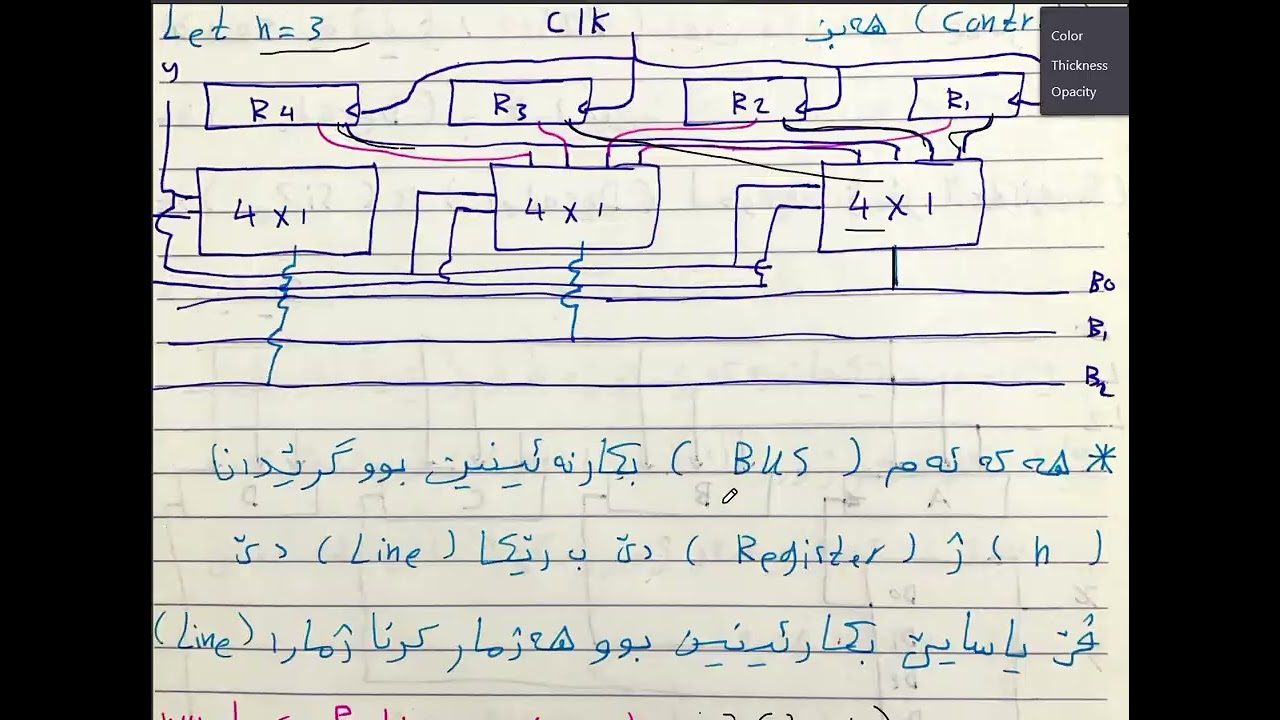 Let n = 3
Clk
هەبن (Contr
Color
Thickness
Opacity
y
R4 R3 R2 R1
4 x 1 4 x 1 4 x 1
B0
B1
B2
* هەکە ئەم (BUS) بکارنەئینین بوو گرێدانا
(n) ژ (Register) دێ ب رێکا (Line) دێ
ڤێ یاسایێ بکارئینین بوو هەژمار کرنا ژمارا (Line)